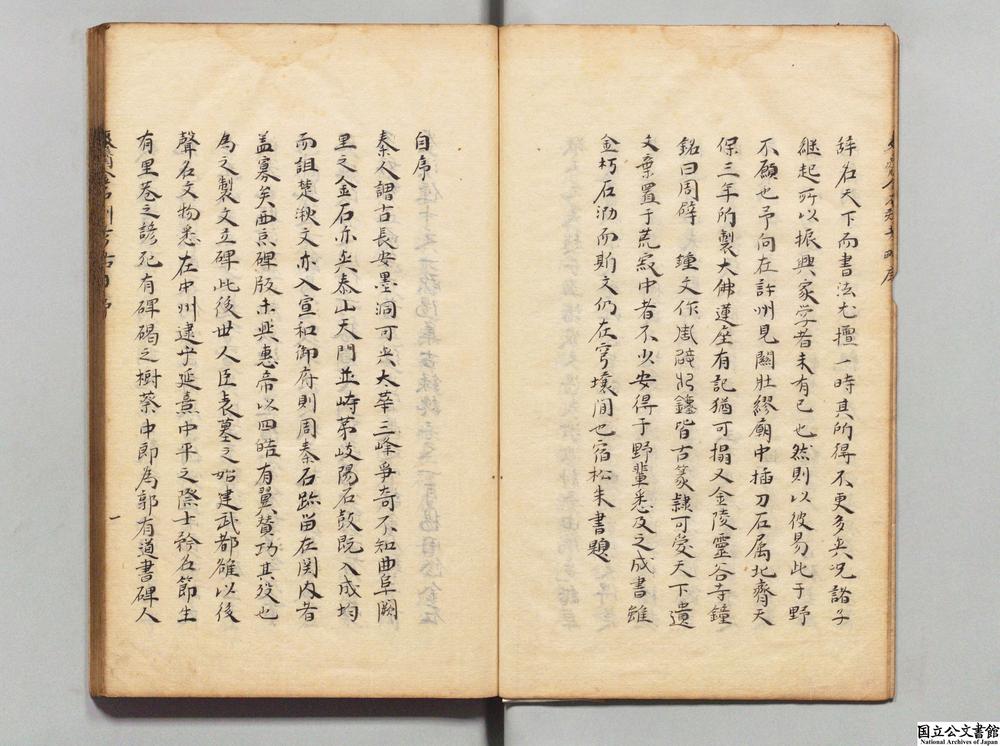 辞右天下而書法尤擅一時其所得不更多矣况諸子
継起所以振興家学者未有已也然則以彼易此于野
不願也予向在許州見關壯繆廟中插刀石属北齊天
保三年所製大佛蓮座有記猶可搨又金陵靈谷寺鐘
銘曰周辟鐘文作周辟 鐘皆古篆隷可愛天下遺
文棄置于荒寂中者不少安得于野輩悉及之成書雖
金朽石泐而斯文仍在穹壤間也宿松朱書題
自序
秦人謂古長安墨洞可与太華三峰爭奇不知曲阜闕
里之金石亦与泰山天門並峙苐岐陽石鼓既入成均
而詛楚湫文亦入宣和御府則周秦石跡留在関内者
盖寡矣西京碑版未興惠帝以四皓有翼賛功其殁也
為之製文立碑此後世人臣表墓之始建武都雒以後
聲名文物悉在中州逮乎延熹中平之際士矜名節生
有里巷之諺死有碑碣之樹蔡中郎為郭有道書碑人
一
国立公文書館
National Archives of Japan